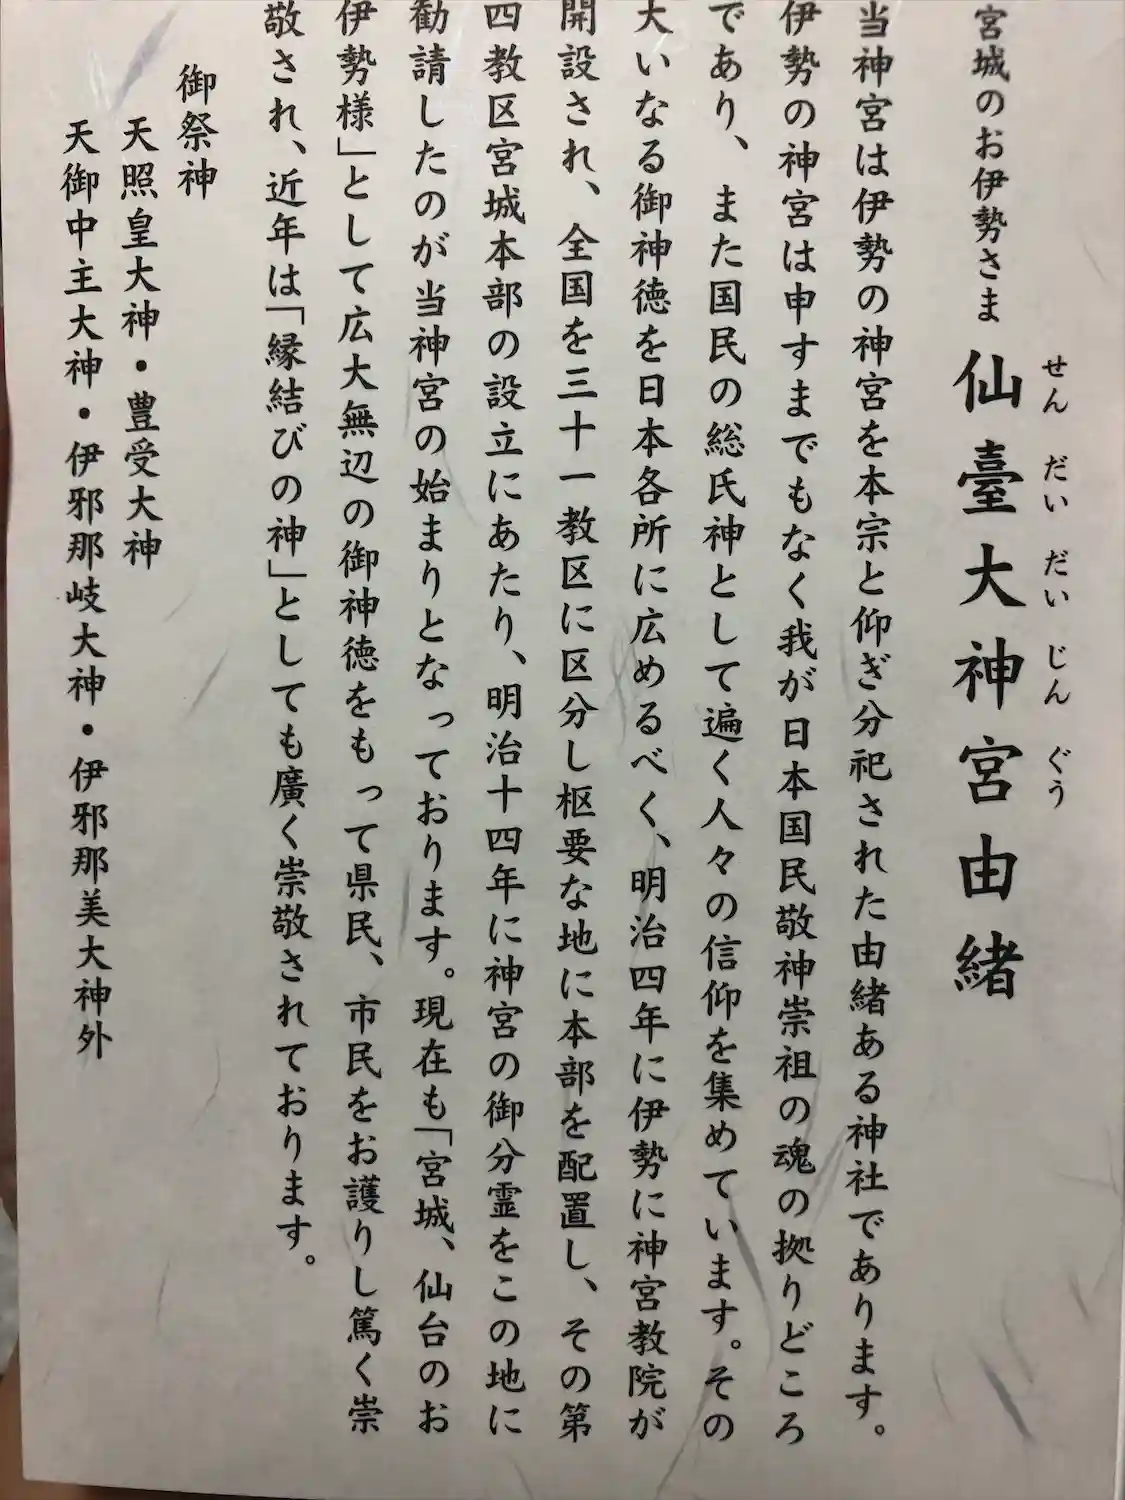 宮城のお伊勢さま 仙臺大神宮由緒
せんだいだいじんぐう
当神宮は伊勢の神宮を本宗と仰ぎ分祀された由緒ある神社であります。
伊勢の神宮は申すまでもなく我が日本国民敬神崇祖の魂の拠りどころ
であり、また国民の総氏神として遍く人々の信仰を集めています。その
大いなる御神徳を日本各所に広めるべく、明治四年に伊勢に神宮教院が
開設され、全国を三十一教区に区分し枢要な地に本部を配置し、その第
四教区宮城本部の設立にあたり、明治十四年に神宮の御分霊をこの地に
勧請したのが当神宮の始まりとなっております。現在も「宮城、仙台のお
伊勢様」として広大無辺の御神徳をもって県民、市民をお護りし篤く崇
敬され、近年は「縁結びの神」としても廣く崇敬されております。
御祭神
天照皇大神・豊受大神
天御中主大神・伊邪那岐大神・伊邪那美大神外